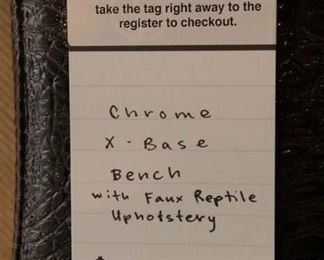 take the tag right away to the
register to checkout.
Chrome
X-Base
Bench
with Faux Reptile
Upholstery